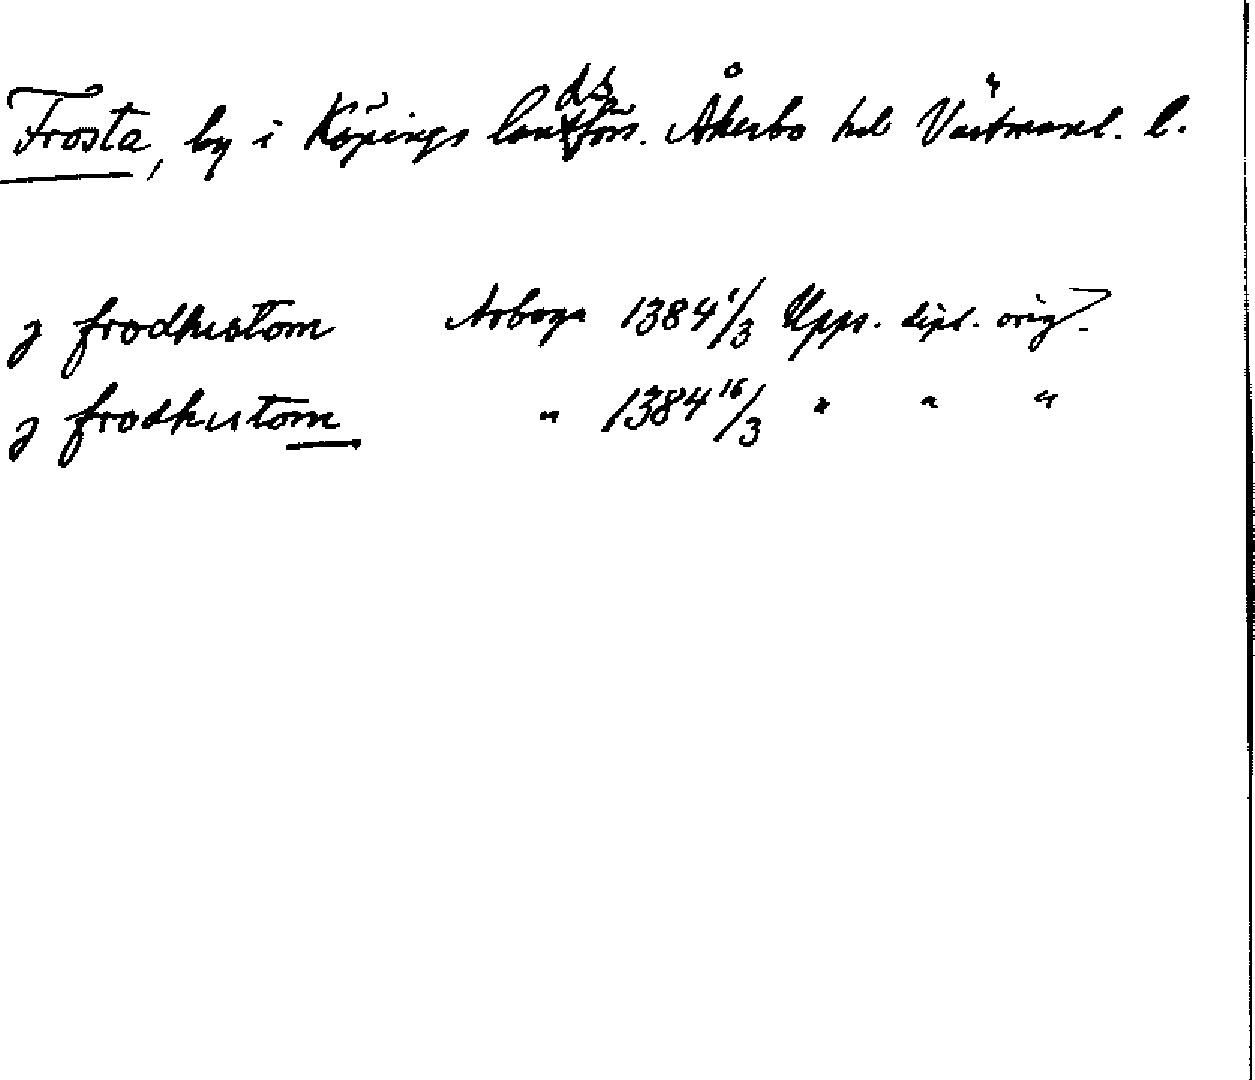 Frosta, by i Köpings landsförs. Åkerbo hd Västmanl. l.
j frodhustom Arboga 1384 1/3 Upps. dipl. orig.
j frodhustom " 1384 16/3 " " "